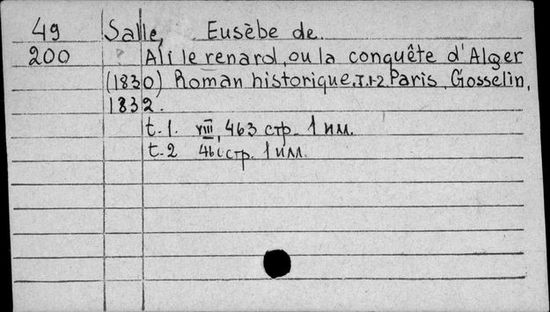 49 Salle, Eusèbe de.
200 Ali le renard, ou la conquête d'Alger
(1830) Roman historique. T. 1-2 Paris, Gosselin,
1832.
t. 1. VIII, 463 стр. 1 илл.
t. 2 461 стр. 1 илл.